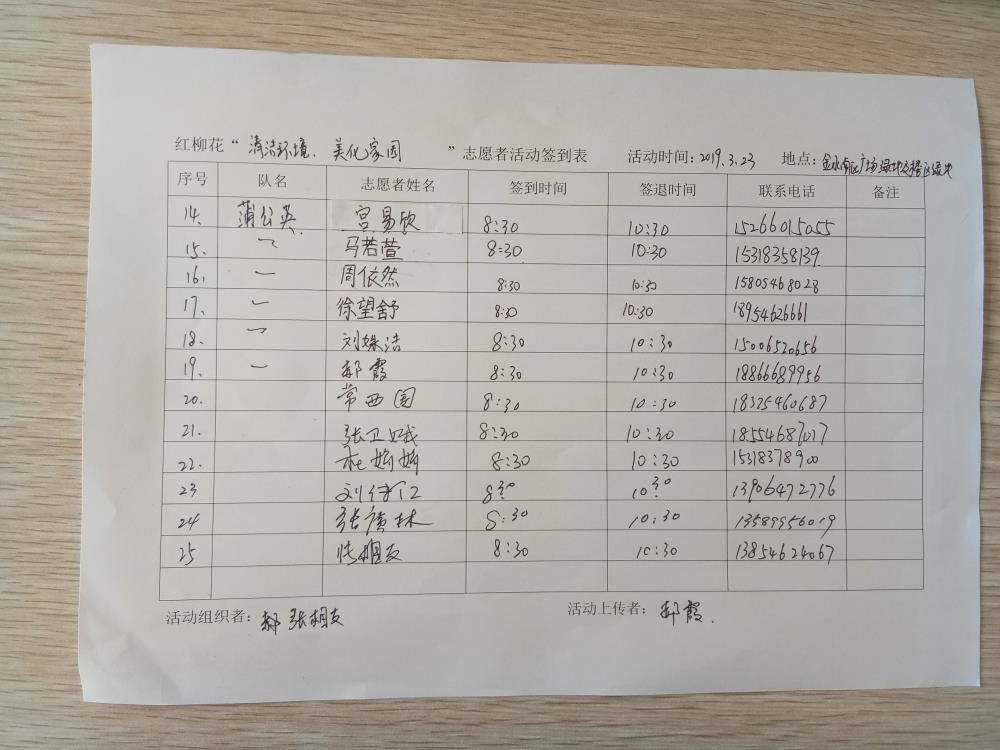 红柳花“清洁环境、美化家园”志愿者活动签到表 活动时间：2019.3.23 地点：金水南区广场绿地及楼区绿地
序号 队名 志愿者姓名 签到时间 签退时间 联系电话 备注
14. 蒲公英 宫易欣 8:30 10:30 15266015055
15. 〃 马若萱 8:30 10:30 15318358139
16. 〃 周依然 8:30 10:30 15805468028
17. 〃 徐望舒 8:30 10:30 18954626661
18. 〃 刘姝洁 8:30 10:30 15006520656
19. 〃 郝霞 8:30 10:30 18866689956
20. 常西园 8:30 10:30 18325460687
21. 张卫娥 8:30 10:30 18554687017
22. 杜娇娇 8:30 10:30 15318378900
23 8:30 10:30 13906472776
24 张广林 8:30 10:30 13589956019
25 张相友 8:30 10:30 13854624067
活动组织者：郝 张相友 活动上传者：郝霞.